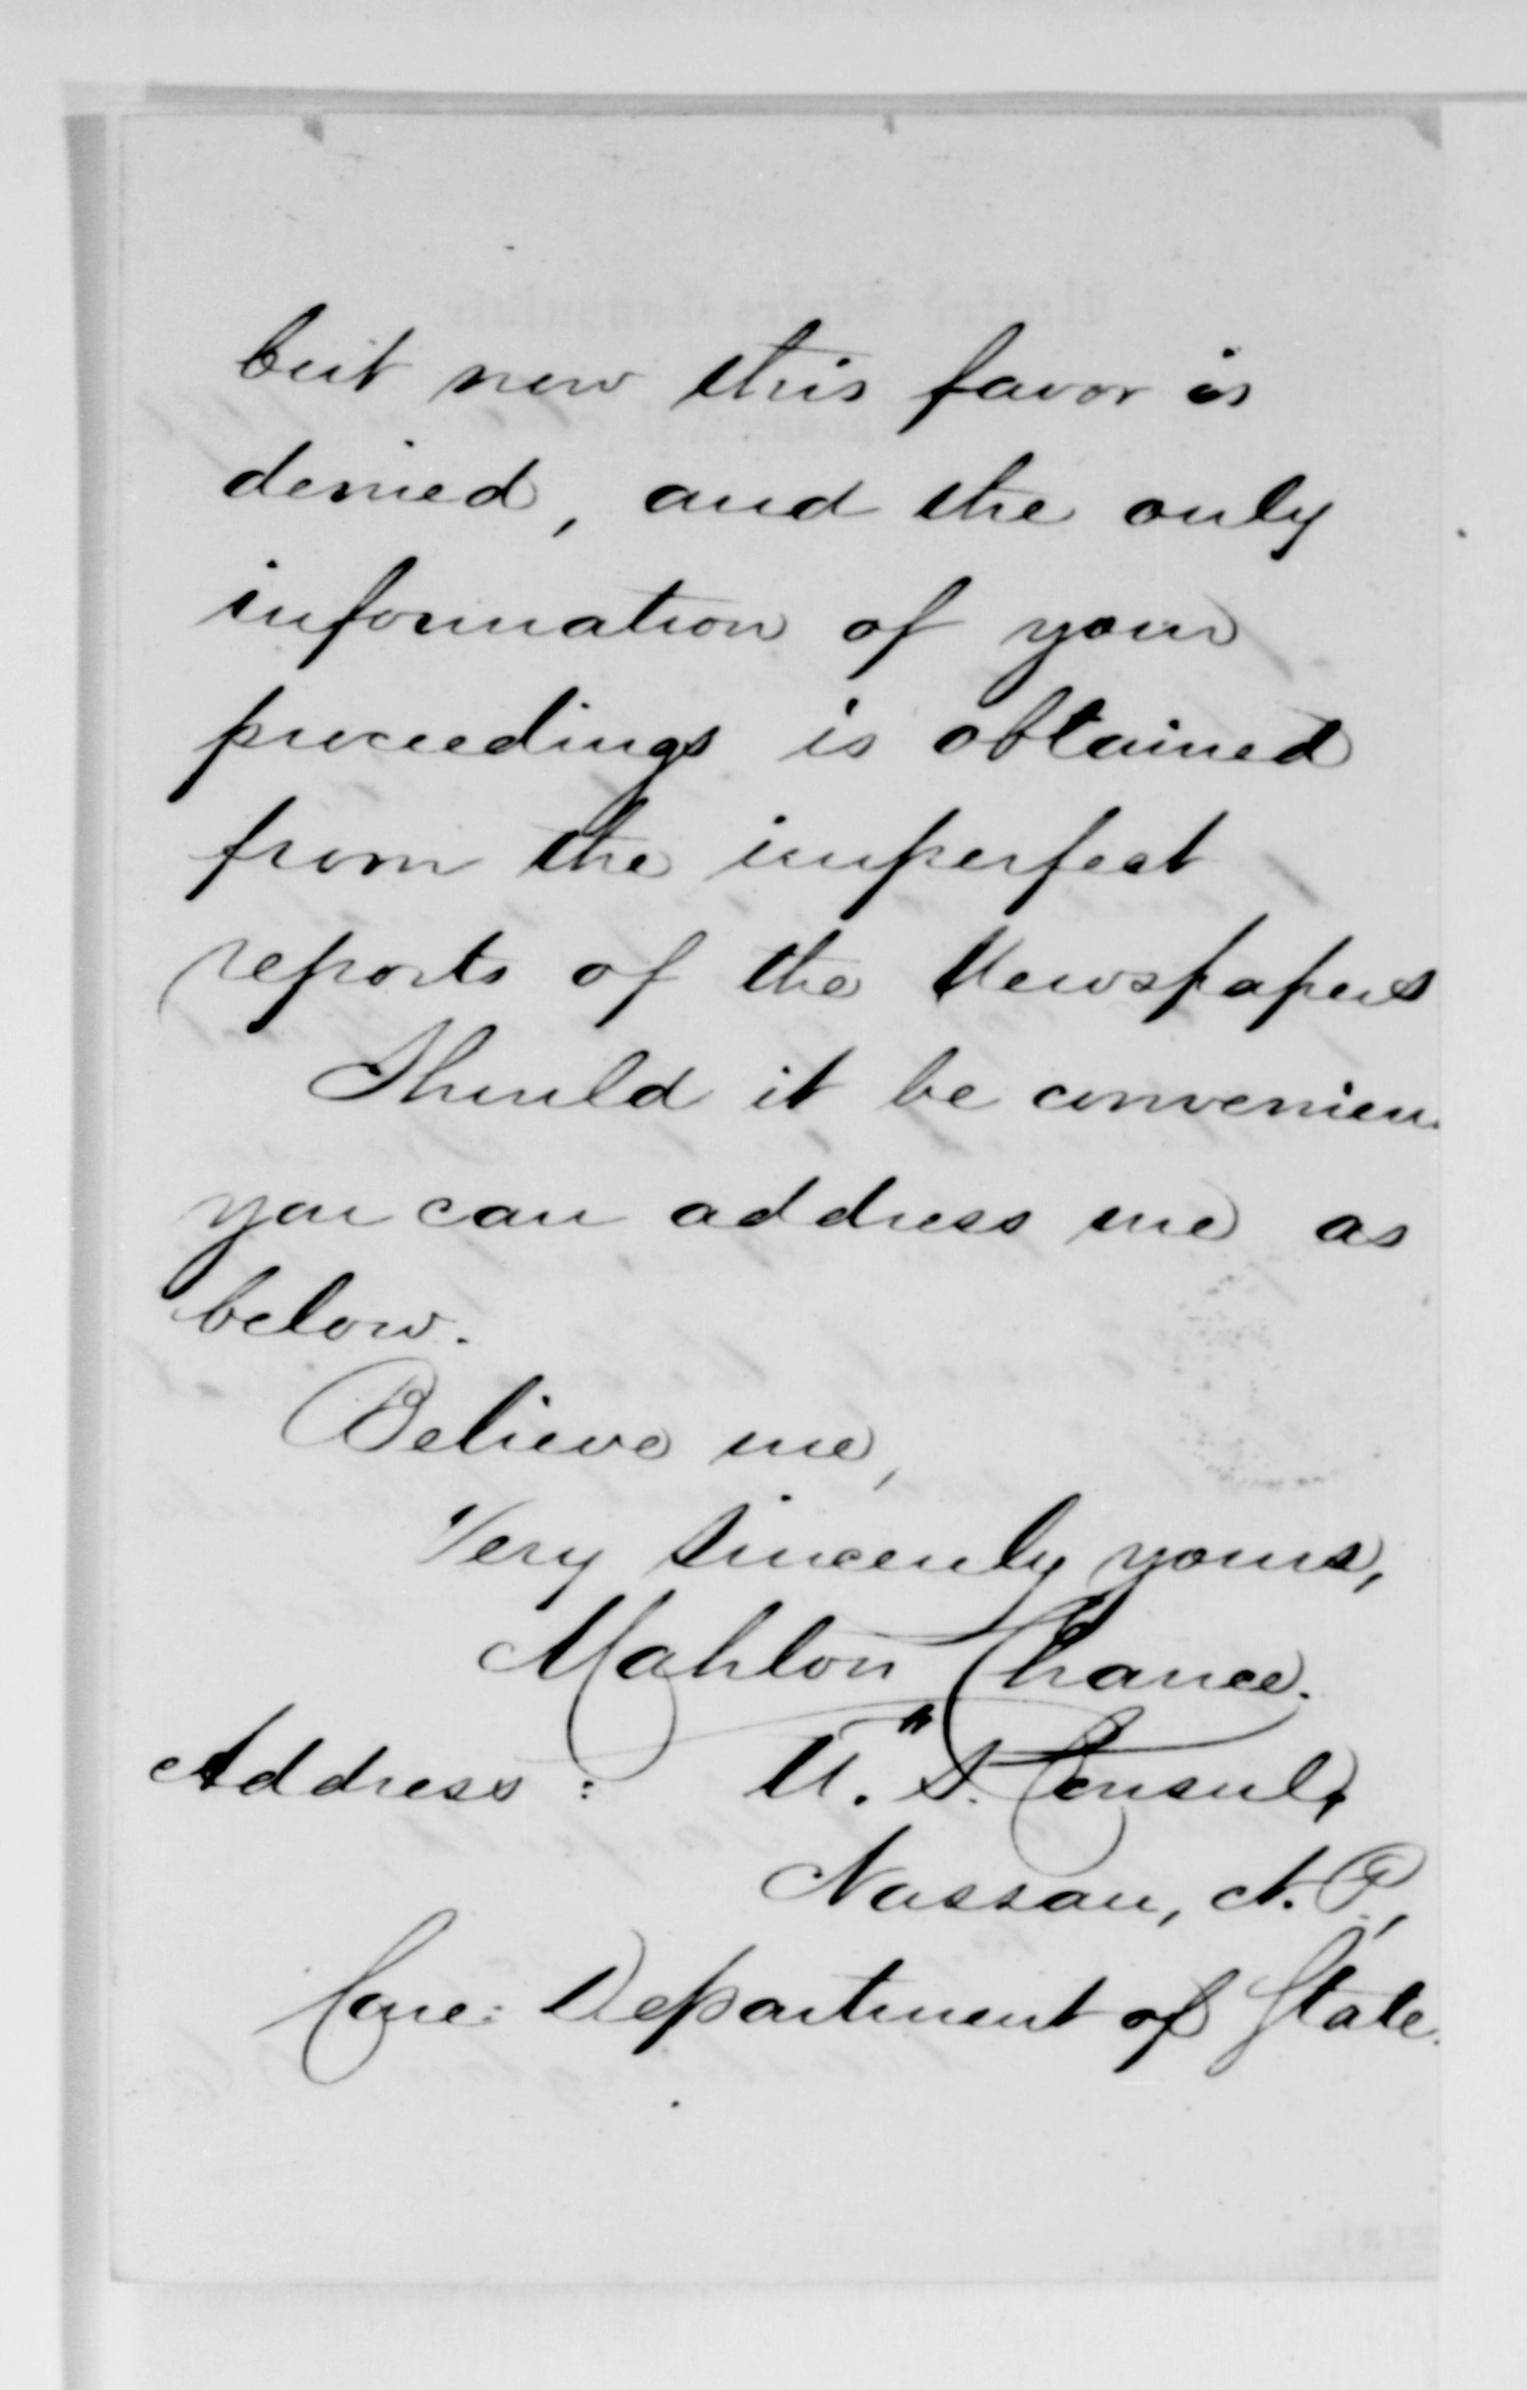 but now this favor is
denied, and the only
information of your
proceedings is obtained
from the imperfect
reports of the Newspapers
Should it be convenien
you can address me as
below.
Believe me,
Very sincerely yours,
Mahlon Chance.
Address : U. S. Consul,
Nassau, N. P.,
Care: Department of State.